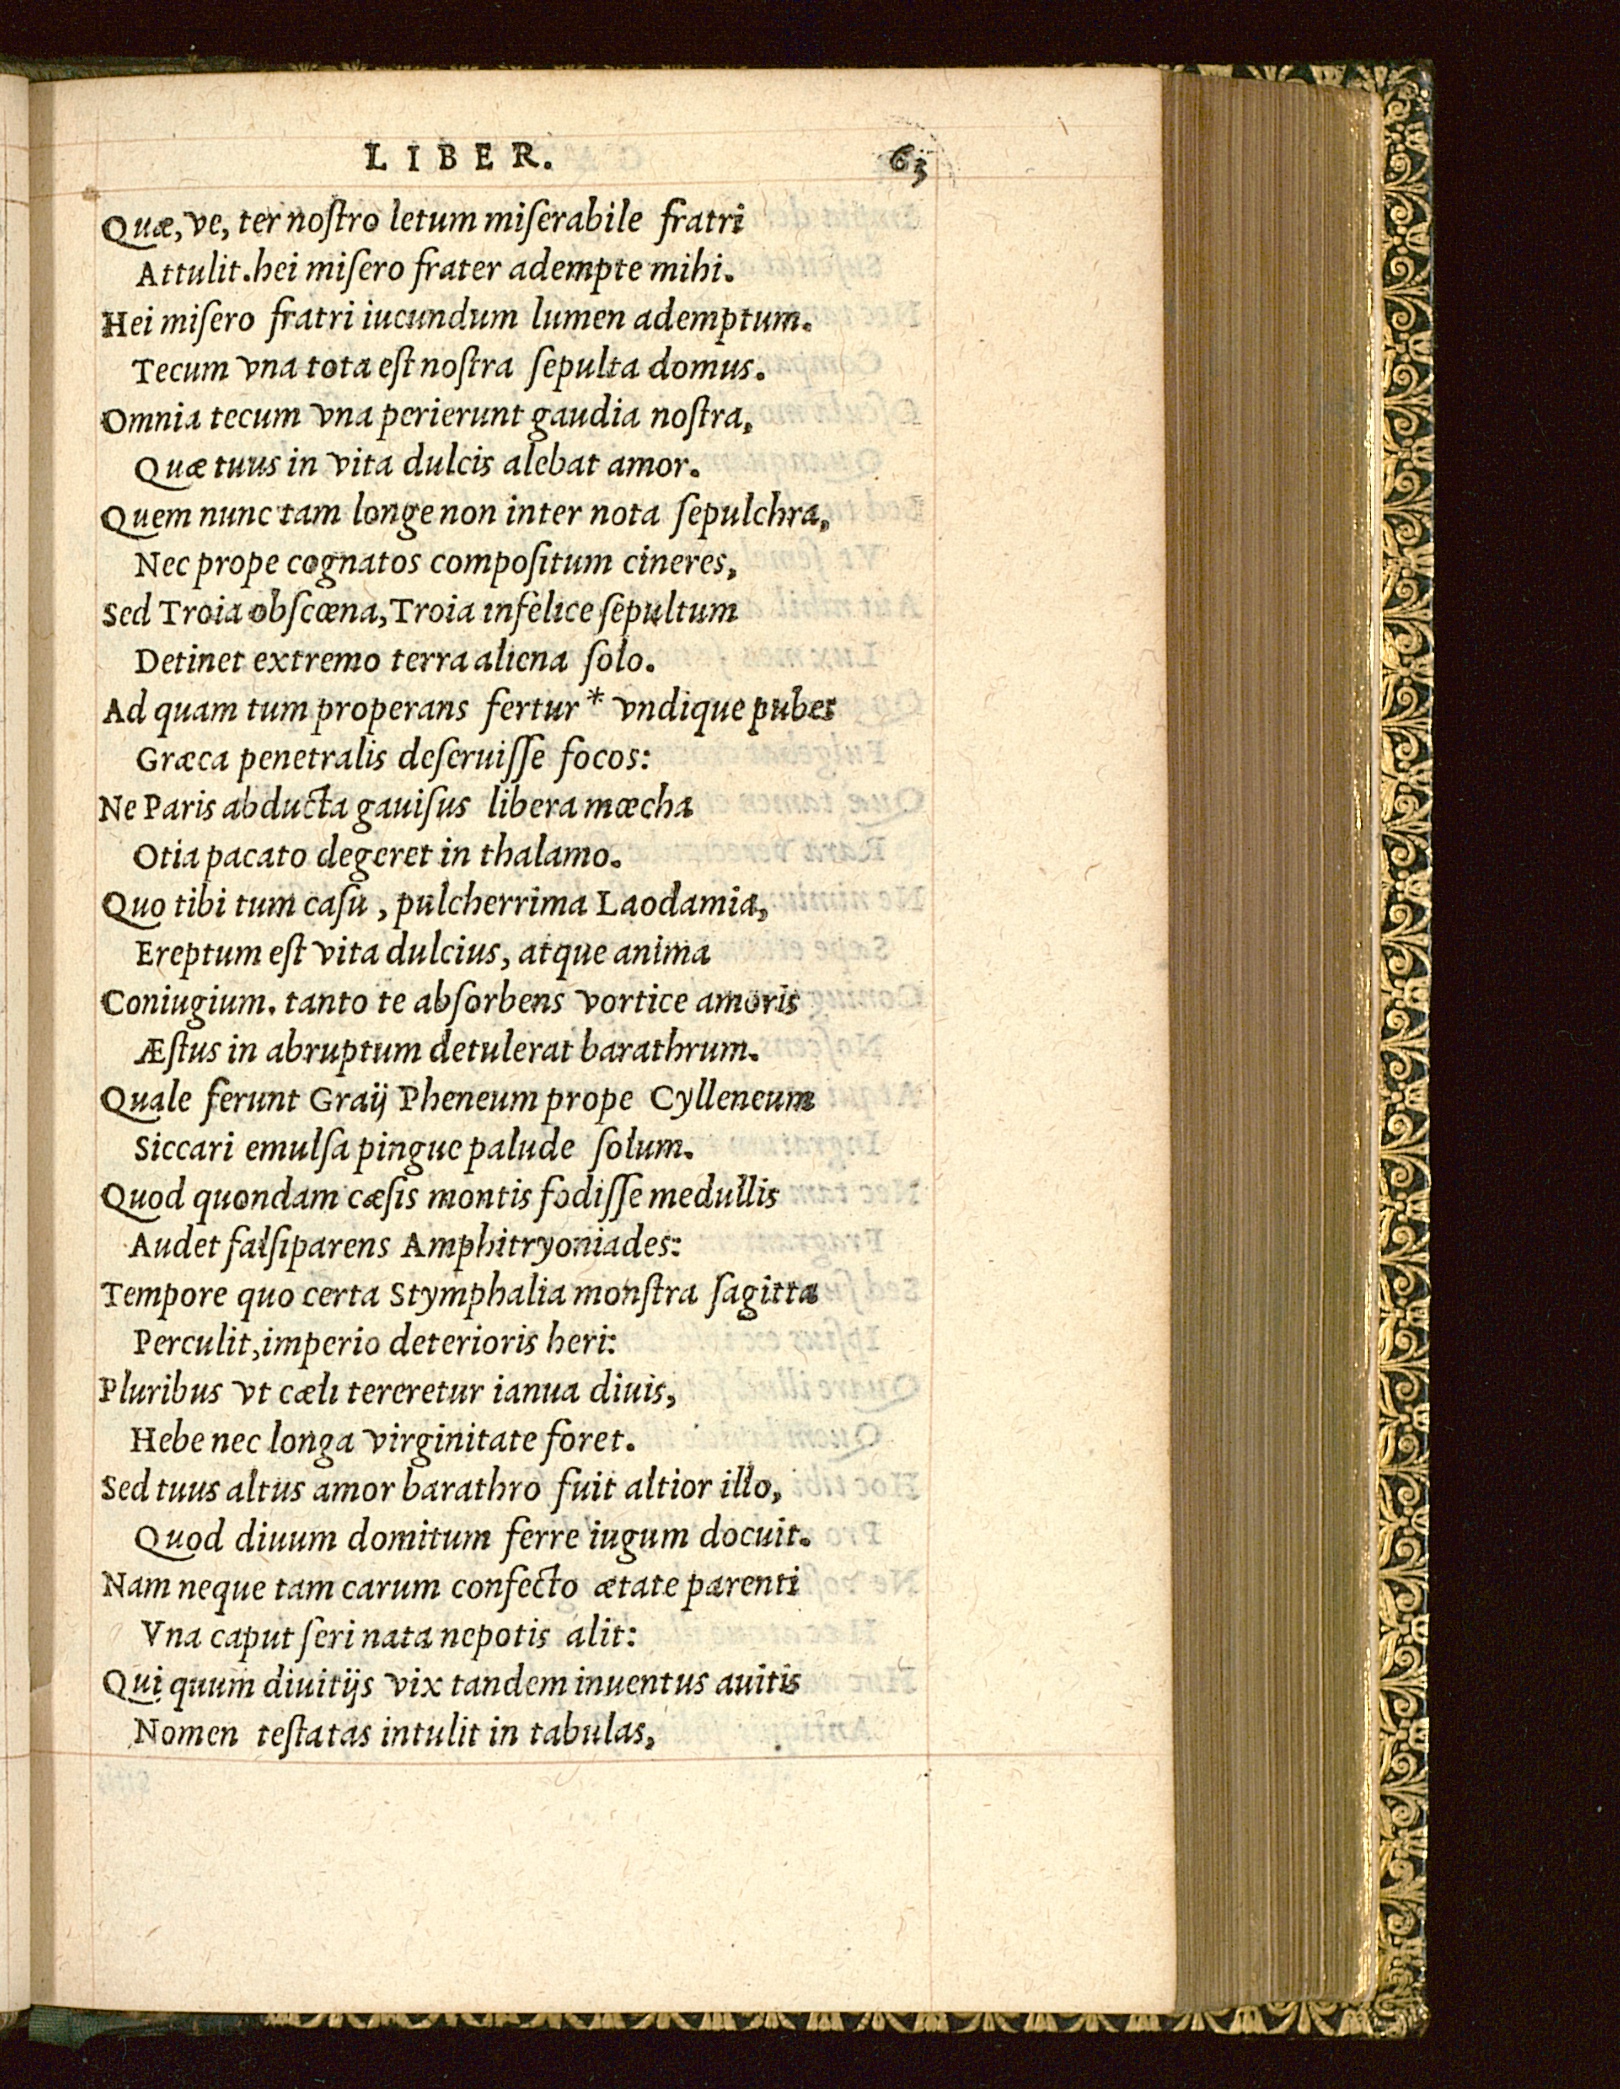 LIBER. 63
Quæ, ve, ter noſtro letum miſerabile fratri
Attulit. hei miſero frater adempte mihi.
Hei miſero fratri iucundum lumen ademptum.
Tecum vna tota eſt noſtra ſepulta domus.
Omnia tecum vna perierunt gaudia noſtra,
Quæ tuus in vita dulcis alebat amor.
Quem nunc tam longe non inter nota ſepulchra,
Nec prope cognatos compoſitum cineres,
Sed Troia obſcœna, Troia infelice ſepultum
Detinet extremo terra aliena ſolo.
Ad quam tum properans fertur * vndique pubes
Græca penetralis deſeruiſſe focos:
Ne Paris abducta gauiſus libera mœcha
Otia pacato degeret in thalamo.
Quo tibi tum caſu, pulcherrima Laodamia,
Ereptum eſt vita dulcius, atque anima
Coniugium. tanto te abſorbens vortice amoris
Æſtus in abruptum detulerat barathrum.
Quale ferunt Graij Pheneum prope Cylleneum
Siccari emulſa pingue palude ſolum.
Quod quondam cæſis montis fodiſſe medullis
Audet falſiparens Amphitryoniades:
Tempore quo certa Stymphalia monſtra ſagitta
Perculit, imperio deterioris heri:
Pluribus vt cæli tereretur ianua diuis,
Hebe nec longa virginitate foret.
Sed tuus altus amor barathro fuit altior illo,
Quod diuum domitum ferre iugum docuit.
Nam neque tam carum confecto ætate parenti
Vna caput ſeri nata nepotis alit:
Qui quum diuitijs vix tandem inuentus auitis
Nomen teſtatas intulit in tabulas,